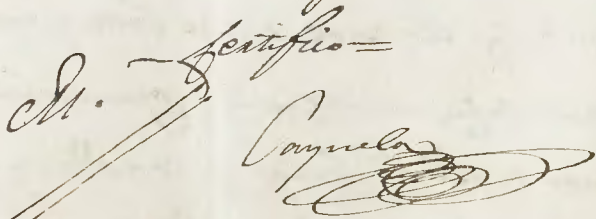 M. - Certifico =
Cayuela